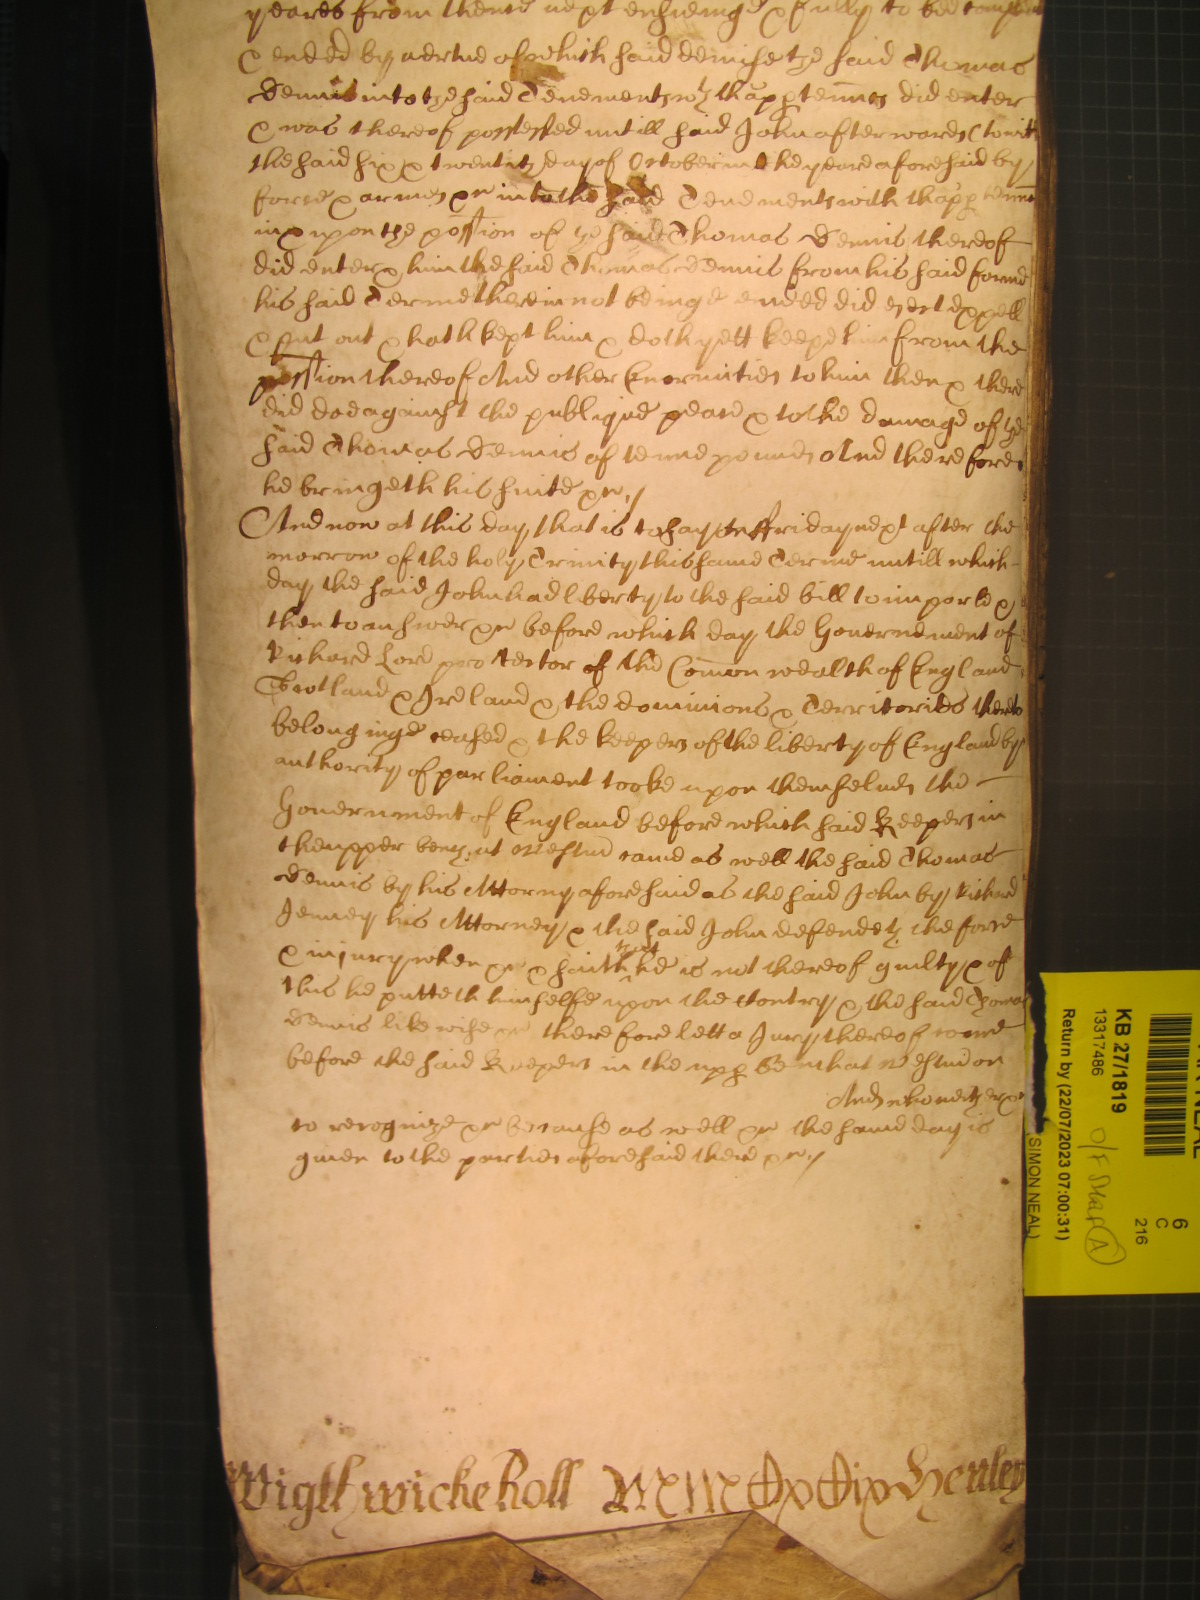 yeares from thence next ensueing & fully to bee compleat
& ended by vertue of which said demise the said Thomas
Dennis into the said Tenements wth thapptennces did enter
& was thereof possessed untill said John afterwards (towitt
the said six & twentith day of October in the yeare aforesaid by
force & armes &c into the said Tenements with thapptennces
in & upon the possion of the said Thomas Dennis thereof
did enter & him the said Thomas Dennis from his said
his said Terme therein not beinge ended did eiect expell
& put out & hath kept him & doth yett keepe him from the
possion thereof And other Enormities to him then & there
did doe against the publique peace & to the damage of the
said Thomas Dennis of tenne pounds And therefore
he bringeth his suite &c.
And now at this day that is to say on ffriday next after the
morrow of the holy Trinity this same Terme untill which
day the said John had liberty to the said bill to imparle &
then to answer &c before which day the Government of
Richard Lord protector of the Comon wealth of England
Scotland & Ireland & the dominions & Territories thereto
belonginge ceased & the keepers of the liberty of England by
authority of parliament tooke upon themselves the
Government of England before which said Keepers in
the upper bench at Westmr came as well the said Thomas
Dennis by his Attorny aforesaid as the said John by Richard
Jenney his Attorney & the said John defendeth the force
& injury when &c & saith that he is not thereof guilty & of
this he putteth himselfe upon the Contry & the said Thomas
Dennis likewise &c therefore lett a Jury thereof come
before the said Keepers in the upp bench at Westmr on
And who neither &c
to recognize &c because as well &c the same day is
given to the parties aforesaid there &c.
Wigthwicke Roll Henley
KB 27/1819
13317486
Return by (22/07/2023 07:00:31)
(SIMON NEAL)
6
C
216
A